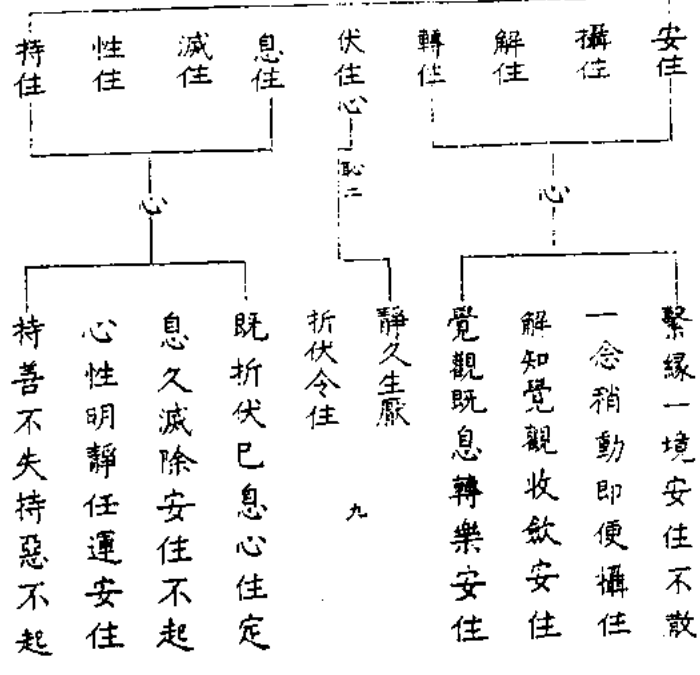 安住
攝住
解住
轉住
伏住心
息住
滅住
性住
持住
心
恥二
心
繫緣一境安住不散
一念稍動即便攝住
解知覺觀收歛安住
覺觀既息轉樂安住
靜久生厭
折伏令住
九
既折伏巳息心住定
息久滅除安住不起
心性明靜任運安住
持善不失持惡不起